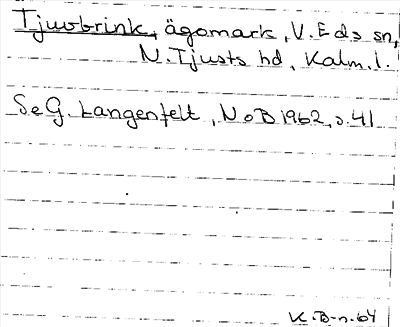 Tjuvbrink, ägomark, V. Eds sn,
N. Tjusts hd, Kalm. l.
Se G. Langenfelt, NoB 1962, s. 41
K. B-n. 64